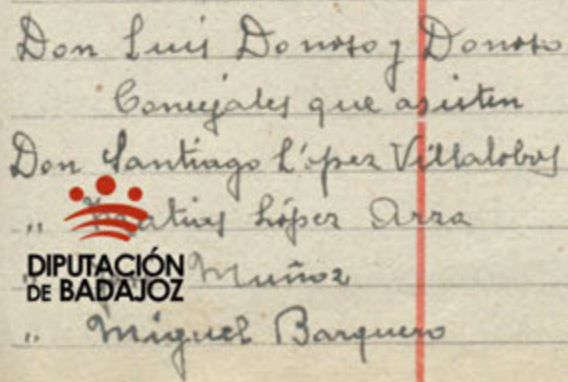 Don Luis Donoso y Donoso
Concejales que asisten
Don Santiago López Villalobos
" López Arza
DIPUTACIÓN
DE BADAJOZ
" Muñoz
" Miguel Barquero